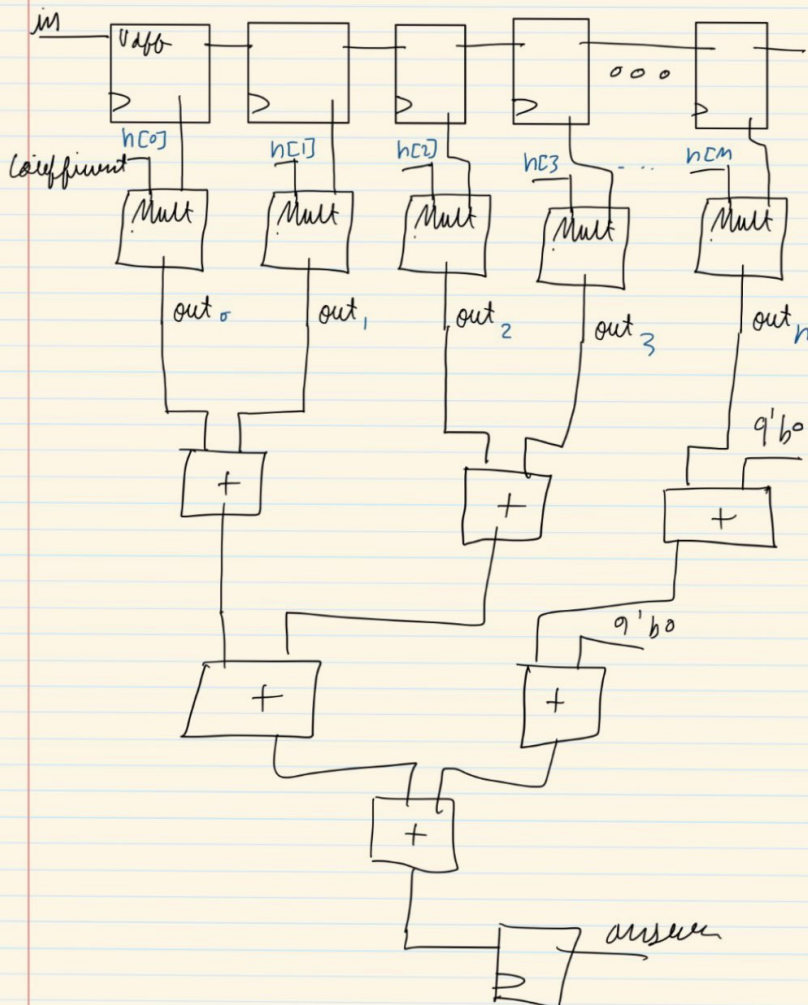 in
Vdff
h[0]
h[1]
h[2]
h[3
....
h[n
Coefficient
Mult
Mult
Mult
Mult
Mult
out 0
out 1
out 2
out 3
out n
9'b0
+
+
+
9'b0
+
+
+
answer